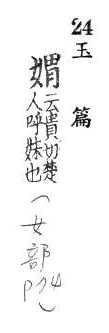 24
玉篇
媦 云貴切楚
人呼妹也
(女部
P74)